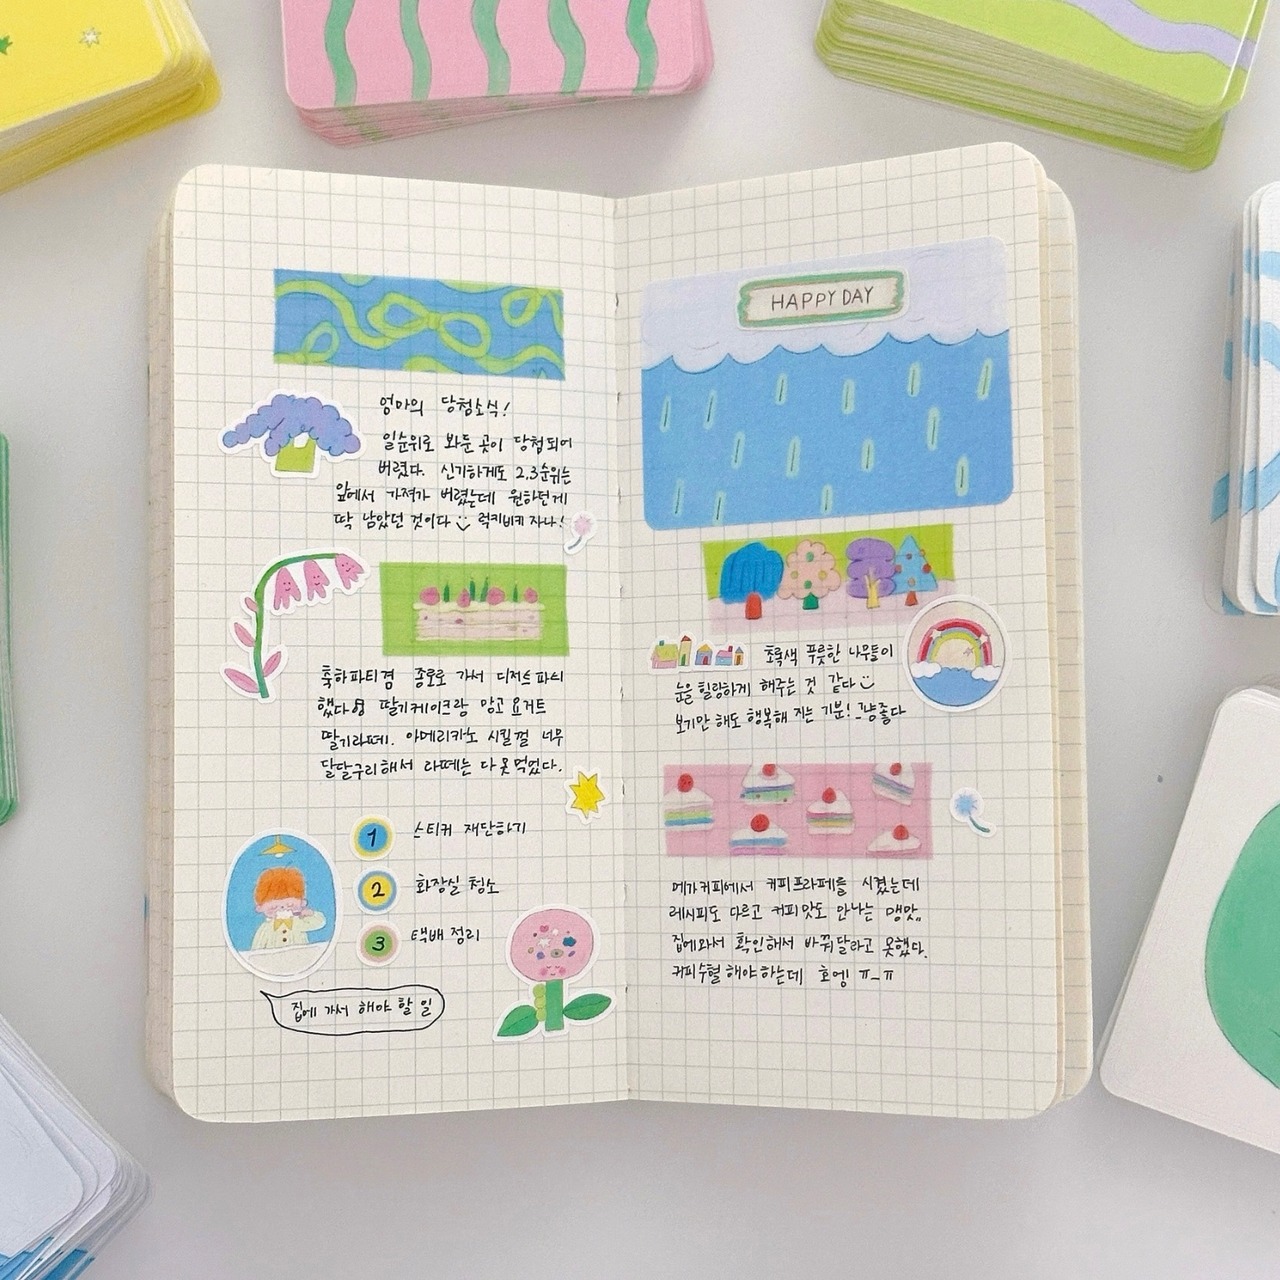 엄마의 당첨소식!
일순위로 봐둔 곳이 당첨되어
버렸다. 신기하게도 2,3순위는
앞에서 가져가 버렸는데 원하던게
딱 남았던 것이다 럭키비키 자나!
축하파티겸 종로로 가서 디저트 파티
했다 딸기케이크랑 망고 요거트
딸기라떼. 아메리카노 시킬껄 너무
달달구리해서 라떼는 다 못 먹었다.
1 스티커 재단하기
2 화장실 청소
3 택배 정리
집에 가서 해야 할 일
HAPPY DAY
초록색 푸릇한 나무들이
눈을 힐링하게 해주는 것 같다
보기만 해도 행복해 지는 기분! 그냥좋다
메가커피에서 커피프라페를 시켰는데
레시피도 다르고 커피맛도 안나는 맹맛..
집에와서 확인해서 바꿔달라고 못했다.
커피수혈 해야하는데 호엥 ㅠ_ㅠ